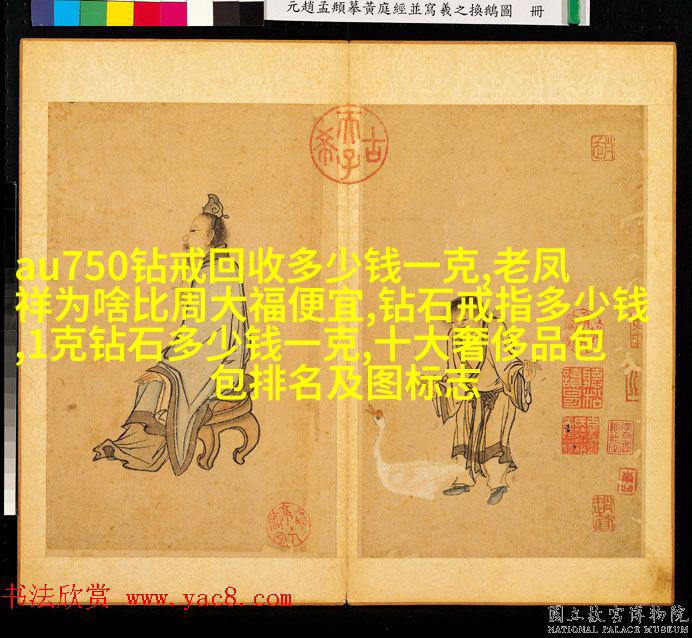 元趙孟頫摹黃庭經並寫羲之換鵝圖 冊
古希天子
au750钻戒回收多少钱一克,老凤
祥为啥比周大福便宜,钻石戒指多少钱
,1克钻石多少钱一克,十大奢侈品包
包排名及图标志
书法欣赏 www.yac8.com
國立故宮博物院
NATIONAL PALACE MUSEUM